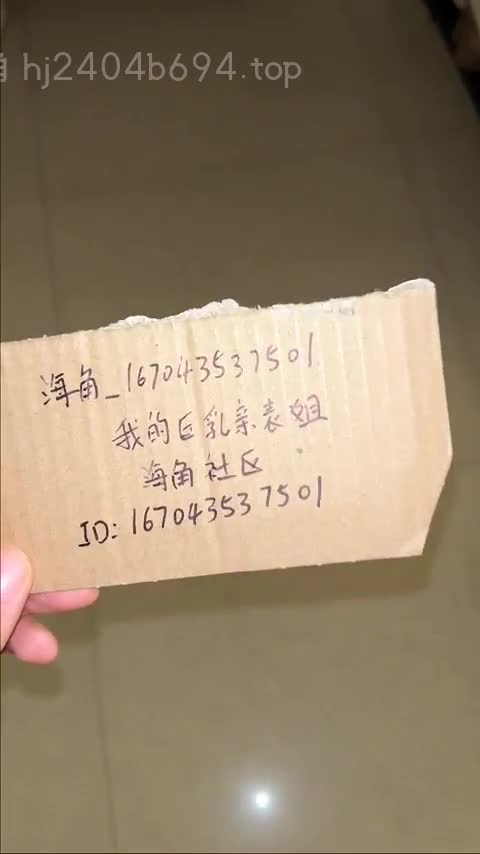 hj2404b694.top
海角_167043537501
我的巨乳亲表姐
海角社区
ID: 167043537501